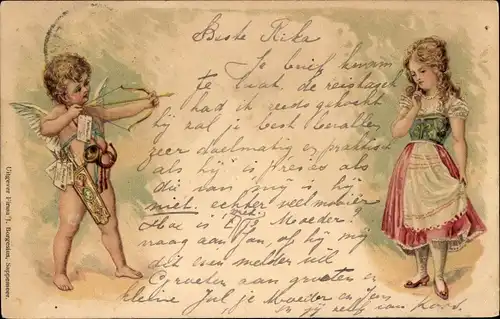 Beste Rika
Je brief kwam
te laat, de reistasch
had ik reeds gekocht
hij zal je best bevallen
zeer doelmatig en praktisch
als hij is precies als
die van mij is hij
niet, echter veel mooier
Hoe is 't met je Moeder?
vraag aan Jan, of hij mij
dit even melden wil
Groeten aan
kleine Jul, je Moeder en Jan
en jij zelf van
Uitgever Firma T. Borgesius, Sappemeer.